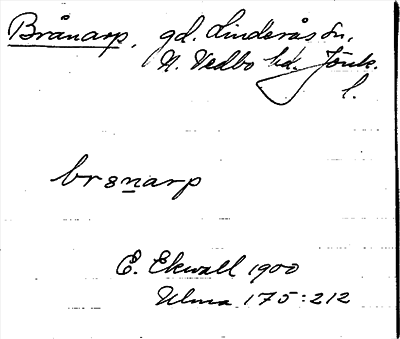 Brånarp, gd. Linderås sn,
N. Vedbo hd. Jönk.
l.
brånarp
E. Ekwall 1900
Ulma 175:212